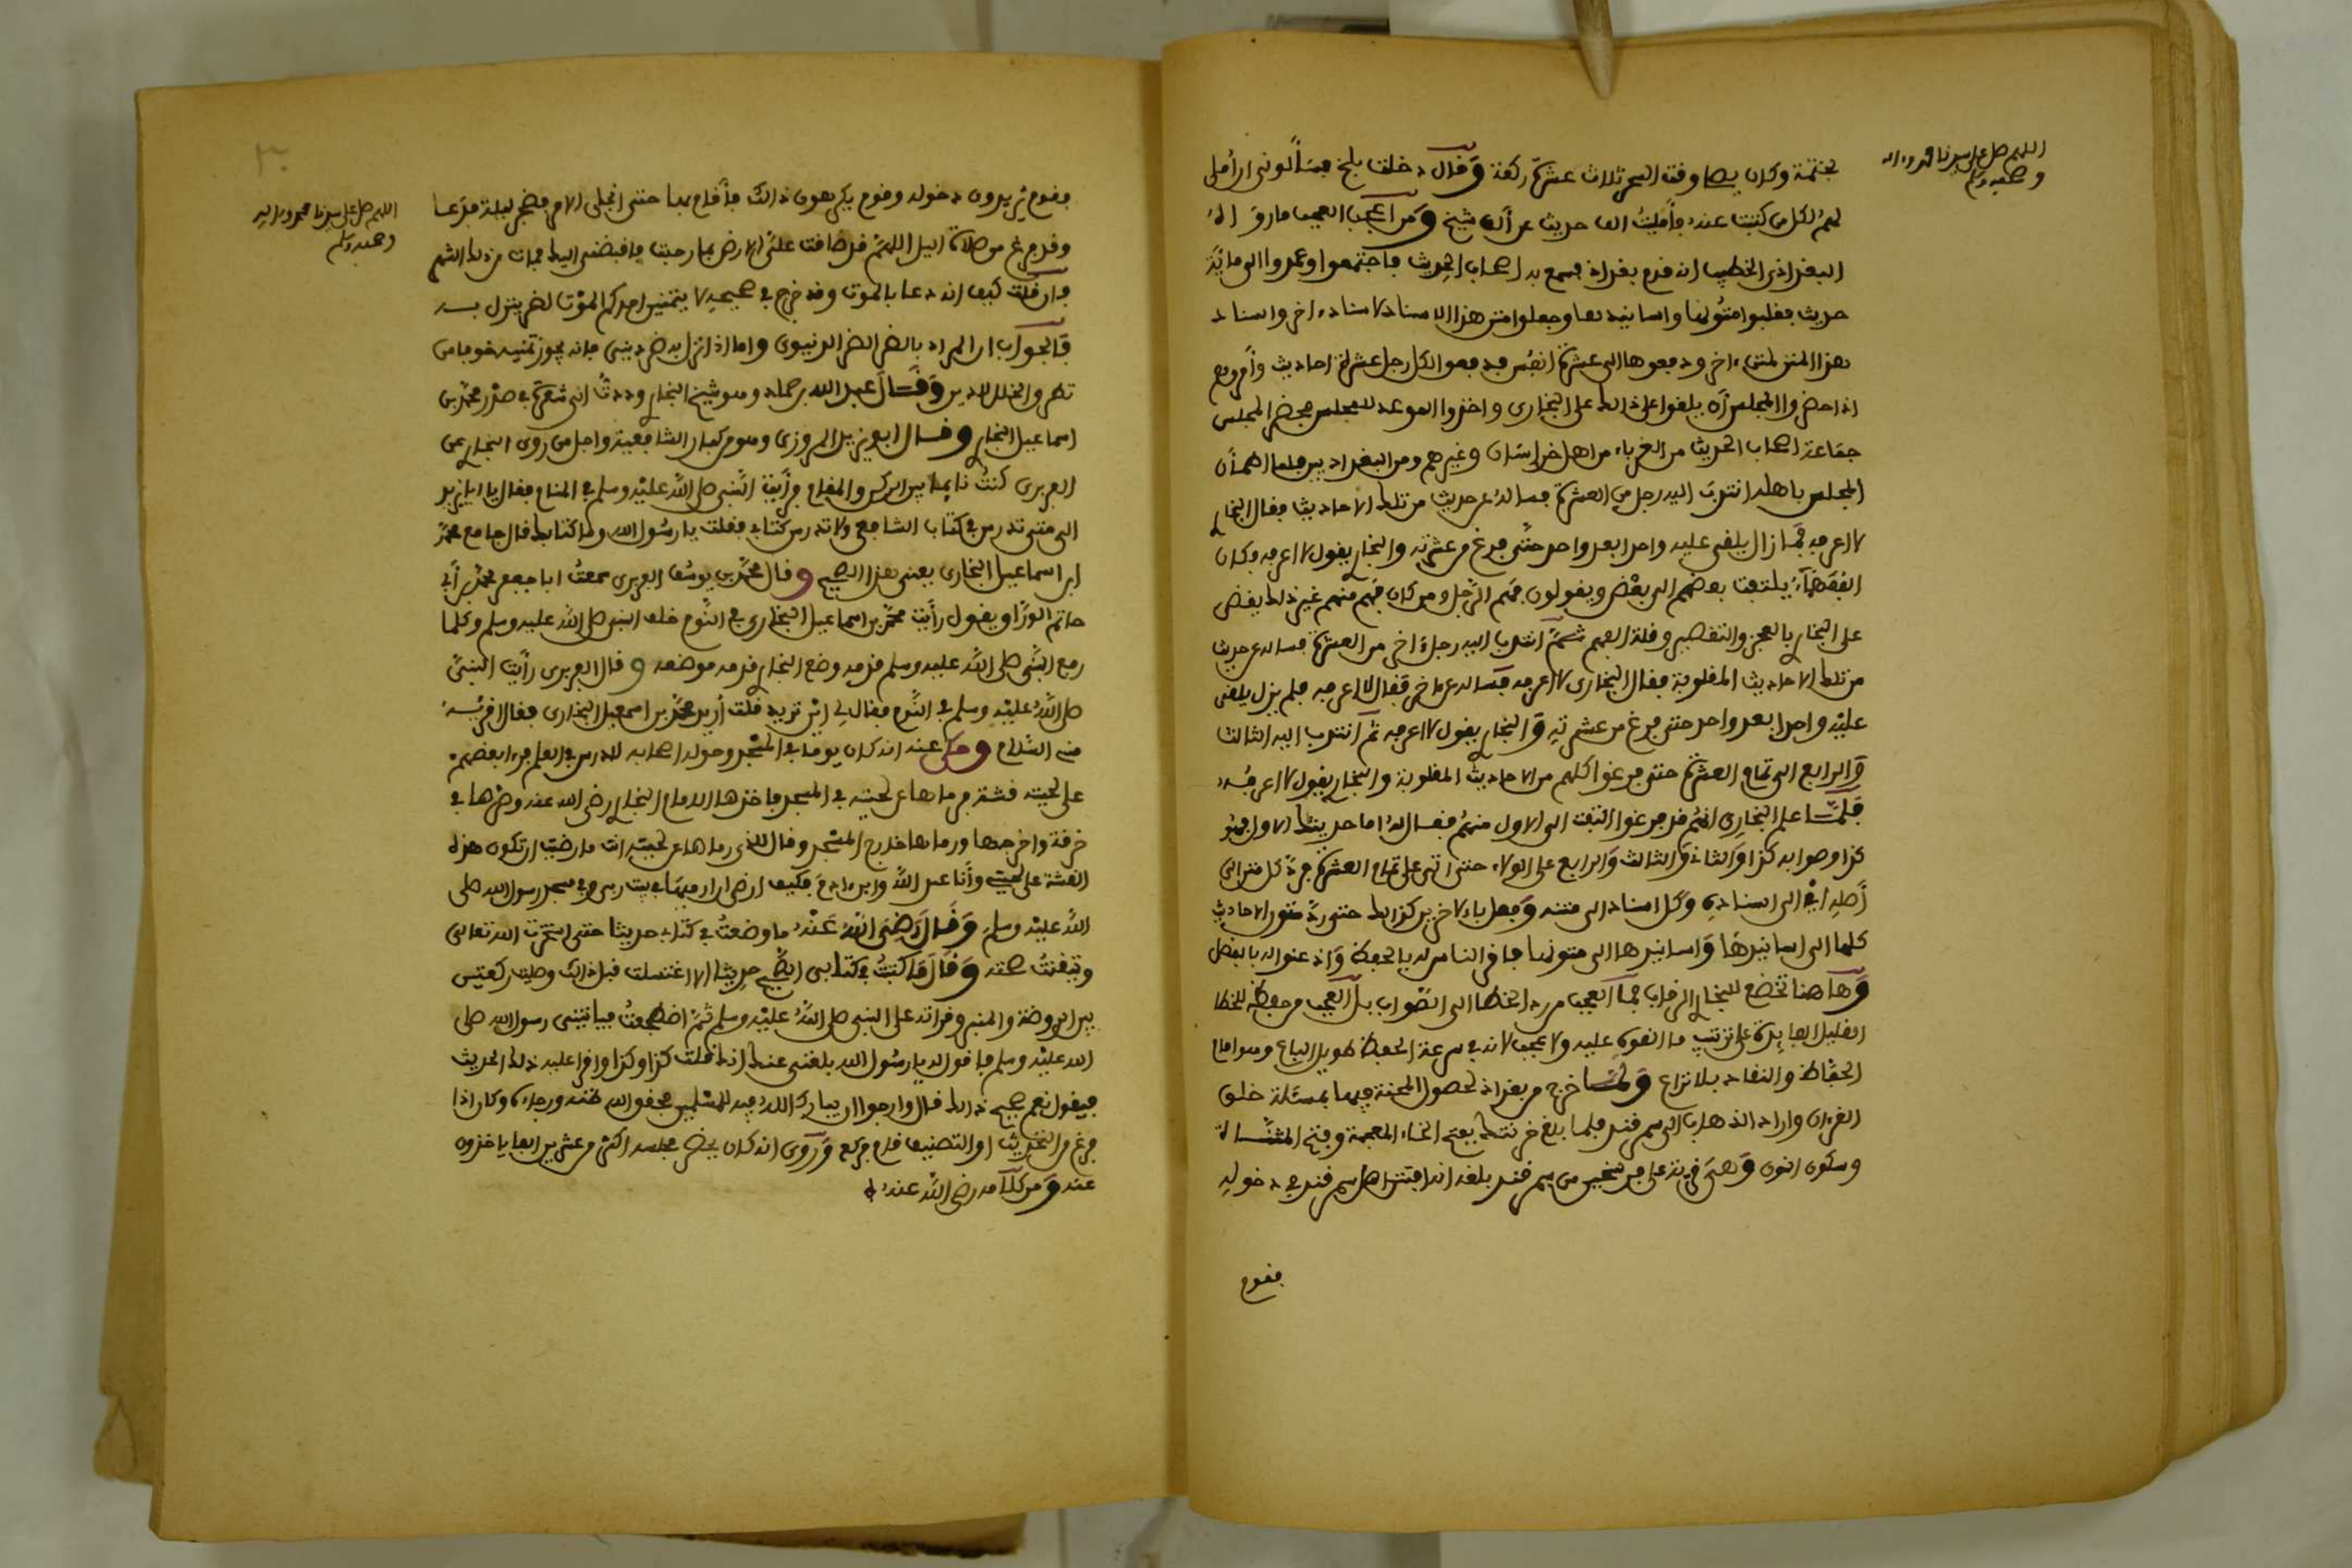 اللهم صل على سيدنا محمد واله
وصحبه وسلم
بختمة وكان يصلي وقت السحر ثلاث عشرة ركعة وقال دخلت بلخ فسألوني ان أملي
لهم لكل من كتبت عنه فأمليت الف حديث عن ألف شيخ ومن اعجب العجب ما رواه
البغدادي الخطيب انه قدم بغداد فسمع به اصحاب الحديث فاجتمعوا وعمدوا الى مائة
حديث فقلبوا متونها واسانيدها وجعلوا متن هذا الاسناد لاسناد ءاخر واسناد
هذا المتن لمتن ءاخر ودفعوها الى عشرة انفس فدفعوا لكل رجل عشرة احاديث وأمروهم
اذا حضروا المجلس أن يلقوا على ذلك على البخاري واخذوا الموعد للمجلس فحضر المجلس
جماعة اصحاب الحديث من الغرباء من اهل خراسان وغيرهم ومن البغداديين فلما اطمأن
المجلس باهله انتدب اليه رجل من العشرة فسأله عن حديث من تلك الاحاديث فقال البخاري
لا اعرفه فما زال يلقي عليه واحدا بعد واحد حتى فرغ من عشرته والبخاري يقول لا اعرفه وكان
الفقهاء يلتفت بعضهم الى بعض ويقولون فهم الرجل ومن كان فهم منهم غير ذلك يقضي
على البخاري بالعجز والتقصير وقلة الفهم ثم انتدب اليه رجل ءاخر من العشرة فسأله عن حديث
من تلك الاحاديث المقلوبة فقال البخاري لا اعرفه فسأله عن ءاخر فقال لا اعرفه فلم يزل يلقي
عليه واحدا بعد واحد حتى فرغ من عشرته والبخاري يقول لا اعرفه ثم انتدب اليه الثالث
والرابع الى تمام العشرة حتى فرغوا كلهم من الاحاديث المقلوبة والبخاري يقول لا اعرفه
فلما علم البخاري انهم قد فرغوا التفت الى الاول منهم فقال له اما حديثك الاول فهو
كذا وصوابه كذا والثاني والثالث والرابع على الولاء حتى اتى على تمام العشرة فرد كل متن الى
أصله الى اسناده وكل اسناد الى متنه وفعل بالاخرين كذلك حتى رد متون الاحاديث
كلها الى اسانيدها واسانيدها الى متونها فاقر الناس له بالحفظ واذعنوا له بالفضل
وها هنا تخضع للبخاري الرقاب فما العجب من رده الخطأ الى الصواب بل العجب من حفظه للخطأ
على ترتيب ما القوه عليه ولا عجب لانه في سرعة الحفظ طويل الباع وهو امام
الحفاظ والنقاد بلا نزاع ولما خرج من بغداد لحصول المحنة فيها بمسئلة خلق
القرءان واراد الذهاب الى سمرقند فلما بلغ خرتنك بفتح الخاء المعجمة وفتح المثناة
وسكون النون وهي قرية على فرسخين من سمرقند بلغه انه افتتن اهل سمرقند في دخوله
فقوم
٣٠
اللهم صل على سيدنا محمد واله
وصحبه وسلم
فقوم يريدون دخوله وقوم يكرهون ذلك فأقام بها حتى انجلى الامر فضجر ليلة فدعا
وقد فرغ من صلاة اليل اللهم قد ضاقت علي الارض بما رحبت فاقبضني اليك فمات من ذلك الشهر
فان قلت كيف انه دعا بالموت وقد خرج في صحيحه لا يتمنين احدكم الموت لضر ينزل به
فالجواب ان المراد بالضر الضر الدنيوي واما اذا نزل به ضر ديني فانه يجوز تمنيه خوفا من
تطرق الخلل للدين وقال عبد الله بن حماد وهو شيخ البخاري وددت اني شعرة في صدر محمد بن
اسماعيل البخاري وقال ابو يزيد المروزي وهو من كبار الشافعية واجل من روى البخاري عن
الفربري كنت نائما بين الركن والمقام فرأيت النبي صلى الله عليه وسلم في المنام فقال يا ابا يزيد
الى متى تدرس في كتاب الشافعي ولا تدرس كتابي فقلت يا رسول الله وما كتابك قال جامع محمد
ابن اسماعيل البخاري يعني هذا الصحيح وقال محمد بن يوسف الفربري سمعت ابا جعفر محمد بن أبي
حاتم الوراق يقول رأيت محمد بن اسماعيل البخاري في النوم خلف النبي صلى الله عليه وسلم وكلما
رفع النبي صلى الله عليه وسلم قدمه وضع البخاري قدمه موضعه وقال الفربري رأيت النبي
صلى الله عليه وسلم في النوم فقال لي اين تريد قلت أريد محمد بن اسمعيل البخاري فقال اقرئه
مني السلام وحكي عنه انه كان يوما في المسجد وحوله اصحابه للدرس في العلم فرءا بعضهم
على لحيته قشة فرماها عن لحيته في المسجد فاخذها الامام البخاري رضي الله عنه وصرها في
خرقة واخرجها ورماها خارج المسجد وقال للذي رماها عن لحيته انت ما رضيت ان تكون هذه
القشة على لحيتي وأنا عبد الله وابن ءادم فكيف ارضى ان ارميها في بيت ربي وفي مسجد رسول الله صلى
الله عليه وسلم وقال رضي الله عنه ما وضعت في كتابي حديثا حتى استخرت الله تعالى
وتيقنت صحته وقال ما كتبت في كتابي الصحيح حديثا الا اغتسلت قبل ذلك وصليت ركعتين
بين الروضة والمنبر وقرأته على النبي صلى الله عليه وسلم ثم اضطجعت فيأتيني رسول الله صلى
الله عليه وسلم فاقول له يا رسول الله بلغني عنك انك قلت كذا وكذا واقرأ عليه ذلك الحديث
فيقول نعم صحيح ذلك قال وارجوا ان يبارك الله فيه للمسلمين فحقق الله ظنه ورجاءه وكان اذا
فرغ من التحديث او التصنيف قام فركع وروي انه كان يحضر مجلسه اكثر من عشرين الفا ياخذون
عنه ومن كلامه رضي الله عنه